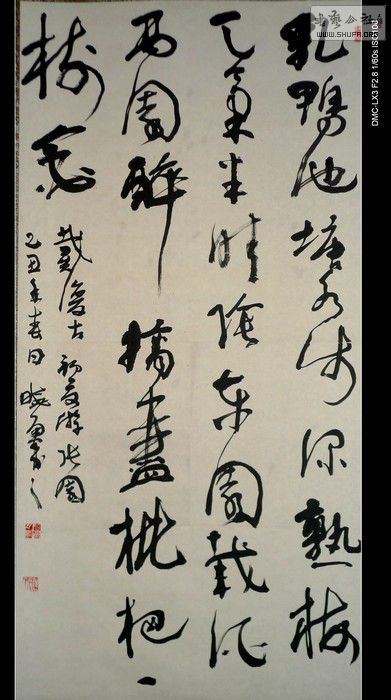 乳鴨池塘水浅深熟梅
天氣半晴陰東園載酒
西園醉摘盡枇杷一
樹金
戴復古初夏游張園
己丑年春日
书艺公社
www.SHUFA.ORG
DMC-LX3 F2.8 1/60s ISO100